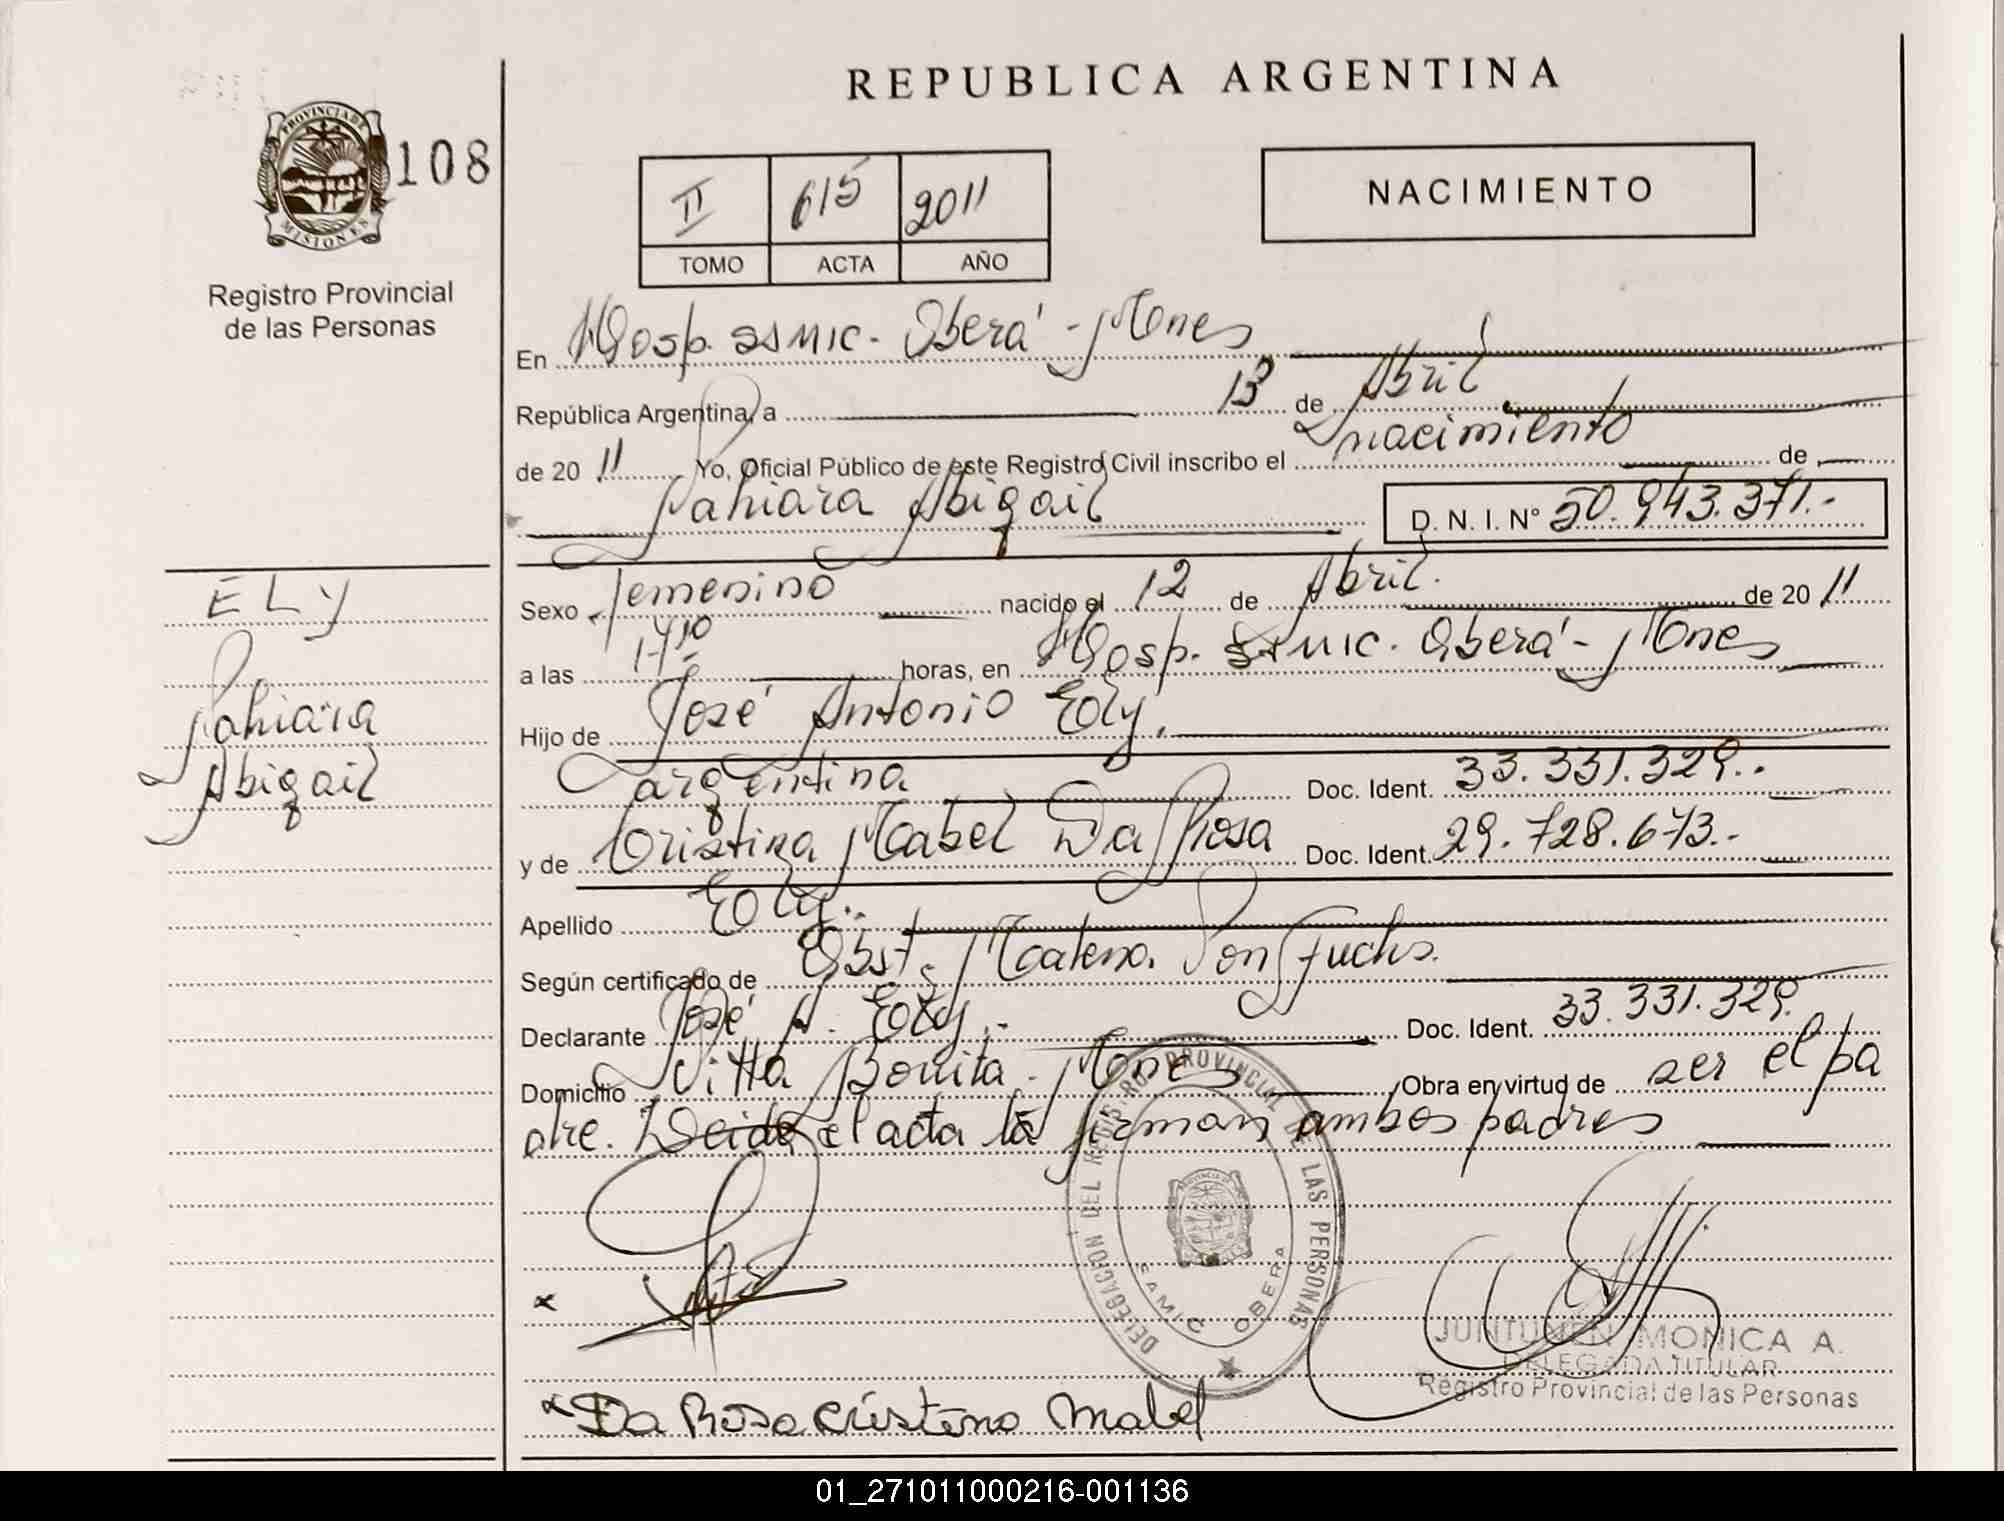 REPUBLICA ARGENTINA
PROVINCIA DE
MISIONES
108
Registro Provincial
de las Personas
II 615 2011
TOMO ACTA AÑO
NACIMIENTO
En Hosp. SAMIC. Oberá - Mnes
República Argentina, a 13 de Abril
de 20 11 Yo, Oficial Público de este Registro Civil inscribo el nacimiento de
Jahiara Abigail D. N. I. N° 50.943.371.-
ELY
Jahiara
Abigail
Sexo Femenino nacido el 12 de Abril. de 20 11
a las 14 10 horas, en Hosp. SAMIC. Oberá - Mnes
Hijo de José Antonio Ely.
argentina Doc. Ident. 33.331.329..
y de Cristina Mabel Da Rosa Doc. Ident. 29.728.673.-
Apellido Ely..
Según certificado de Obst. Von Fuchs.
Declarante José A. Ely.- Doc. Ident. 33.331.329.
Domicilio Villa Bonita - Mnes Obra en virtud de ser el pa
dre. Leida el acta la firman ambos padres
DELEGCION DEL REGISTRO PROVINCIAL DE LAS PERSONAS
SAMIC OBERA
x
JUNTUNEN MONICA A.
DELEGADA TITULAR
Registro Provincial de las Personas
x Da Rosa Cristina Mabel
01_271011000216-001136